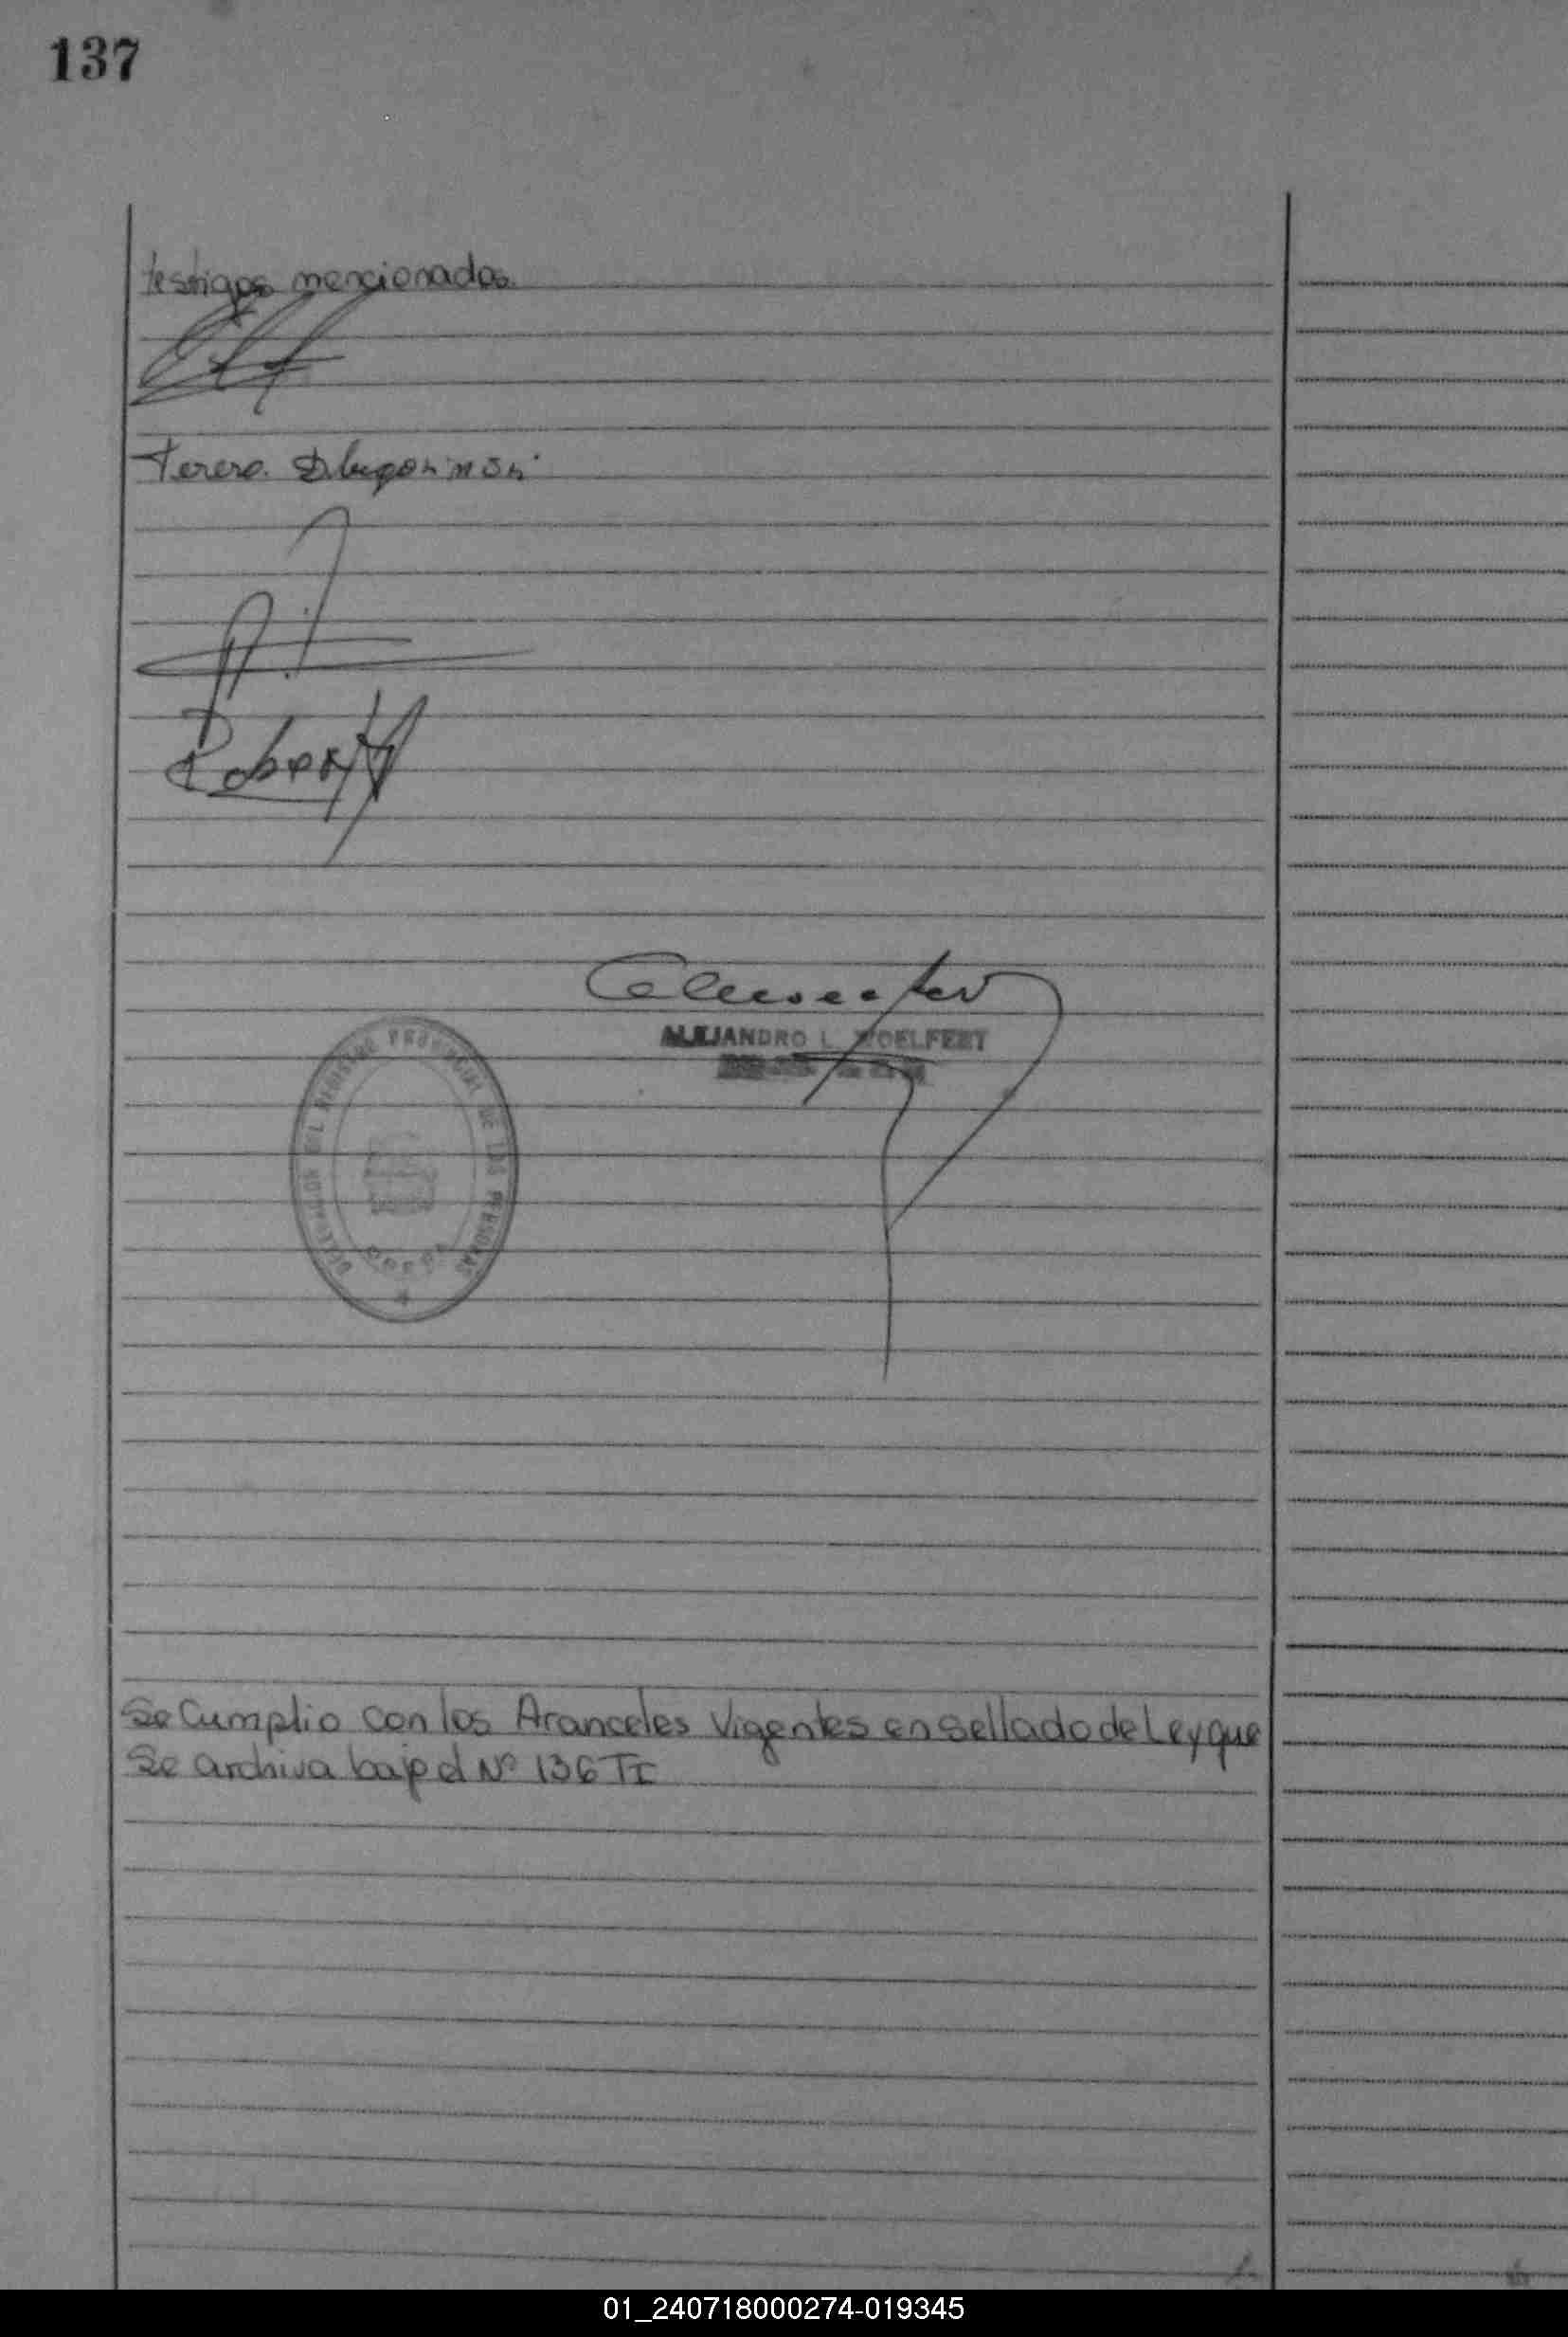 137
testigos mencionados.
Teresa
Robert
ALEJANDRO L. WOELFERT
DELEGACION DEL REGISTRO PROVINCIAL DE LAS PERSONAS
Se Cumplio con los Aranceles Vigentes en sellado de Ley que
Se archiva bajo el Nº 136 TI
01_240718000274-019345